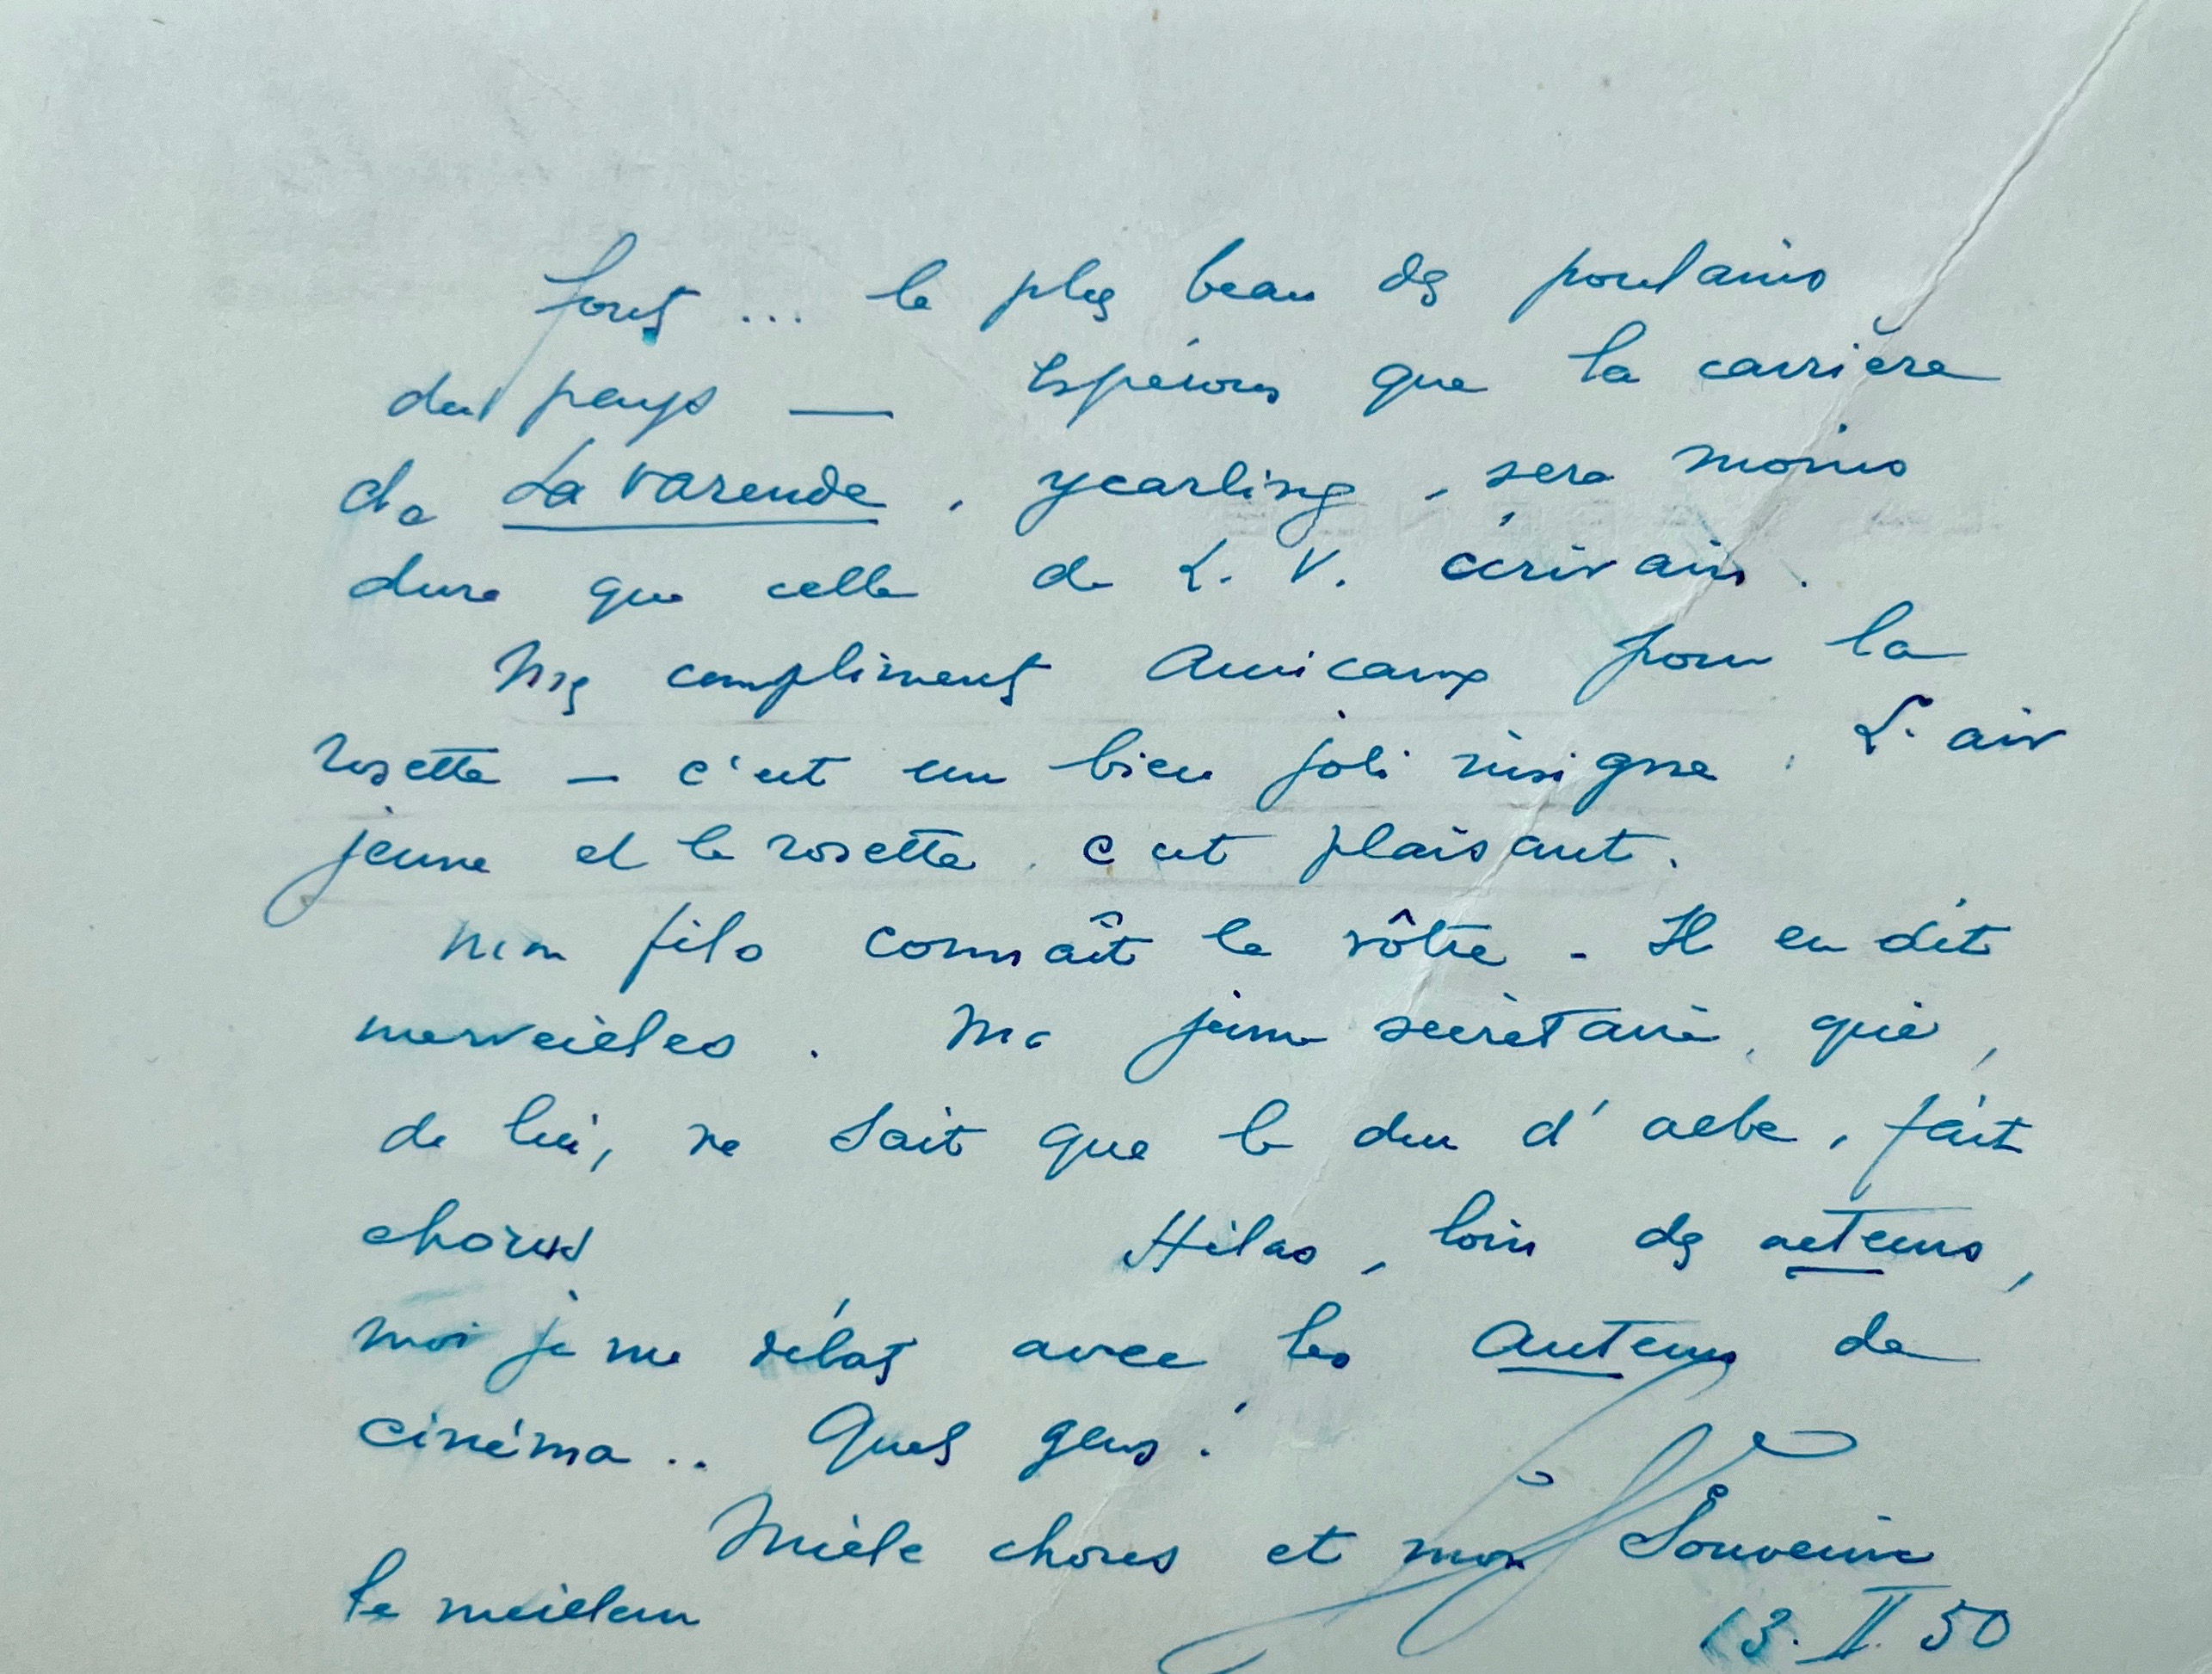 font ... le plus beau des poulains
du pays — Espérons que la carrière
de La Varende, yearling, sera moins
dure que celle de L. V. écrivain.
Mes compliments amicaux pour la
rosette — c'est un bien joli insigne. L'air
jeune et la rosette, c'est plaisant.
Mon fils connaît le vôtre - Il en dit
merveilles. Ma jeune secrétaire, qui,
de lui, ne sait que le duc d'Albe, fait
chorus Hélas, loin des acteurs,
moi je me débats avec les auteurs de
cinéma.. Quels gens!
Mille choses et mon souvenir
le meilleur
13. II. 50